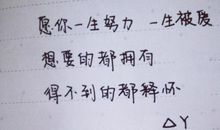 愿你一生努力 一生被爱
想要的都拥有
得不到的都释怀
△Y